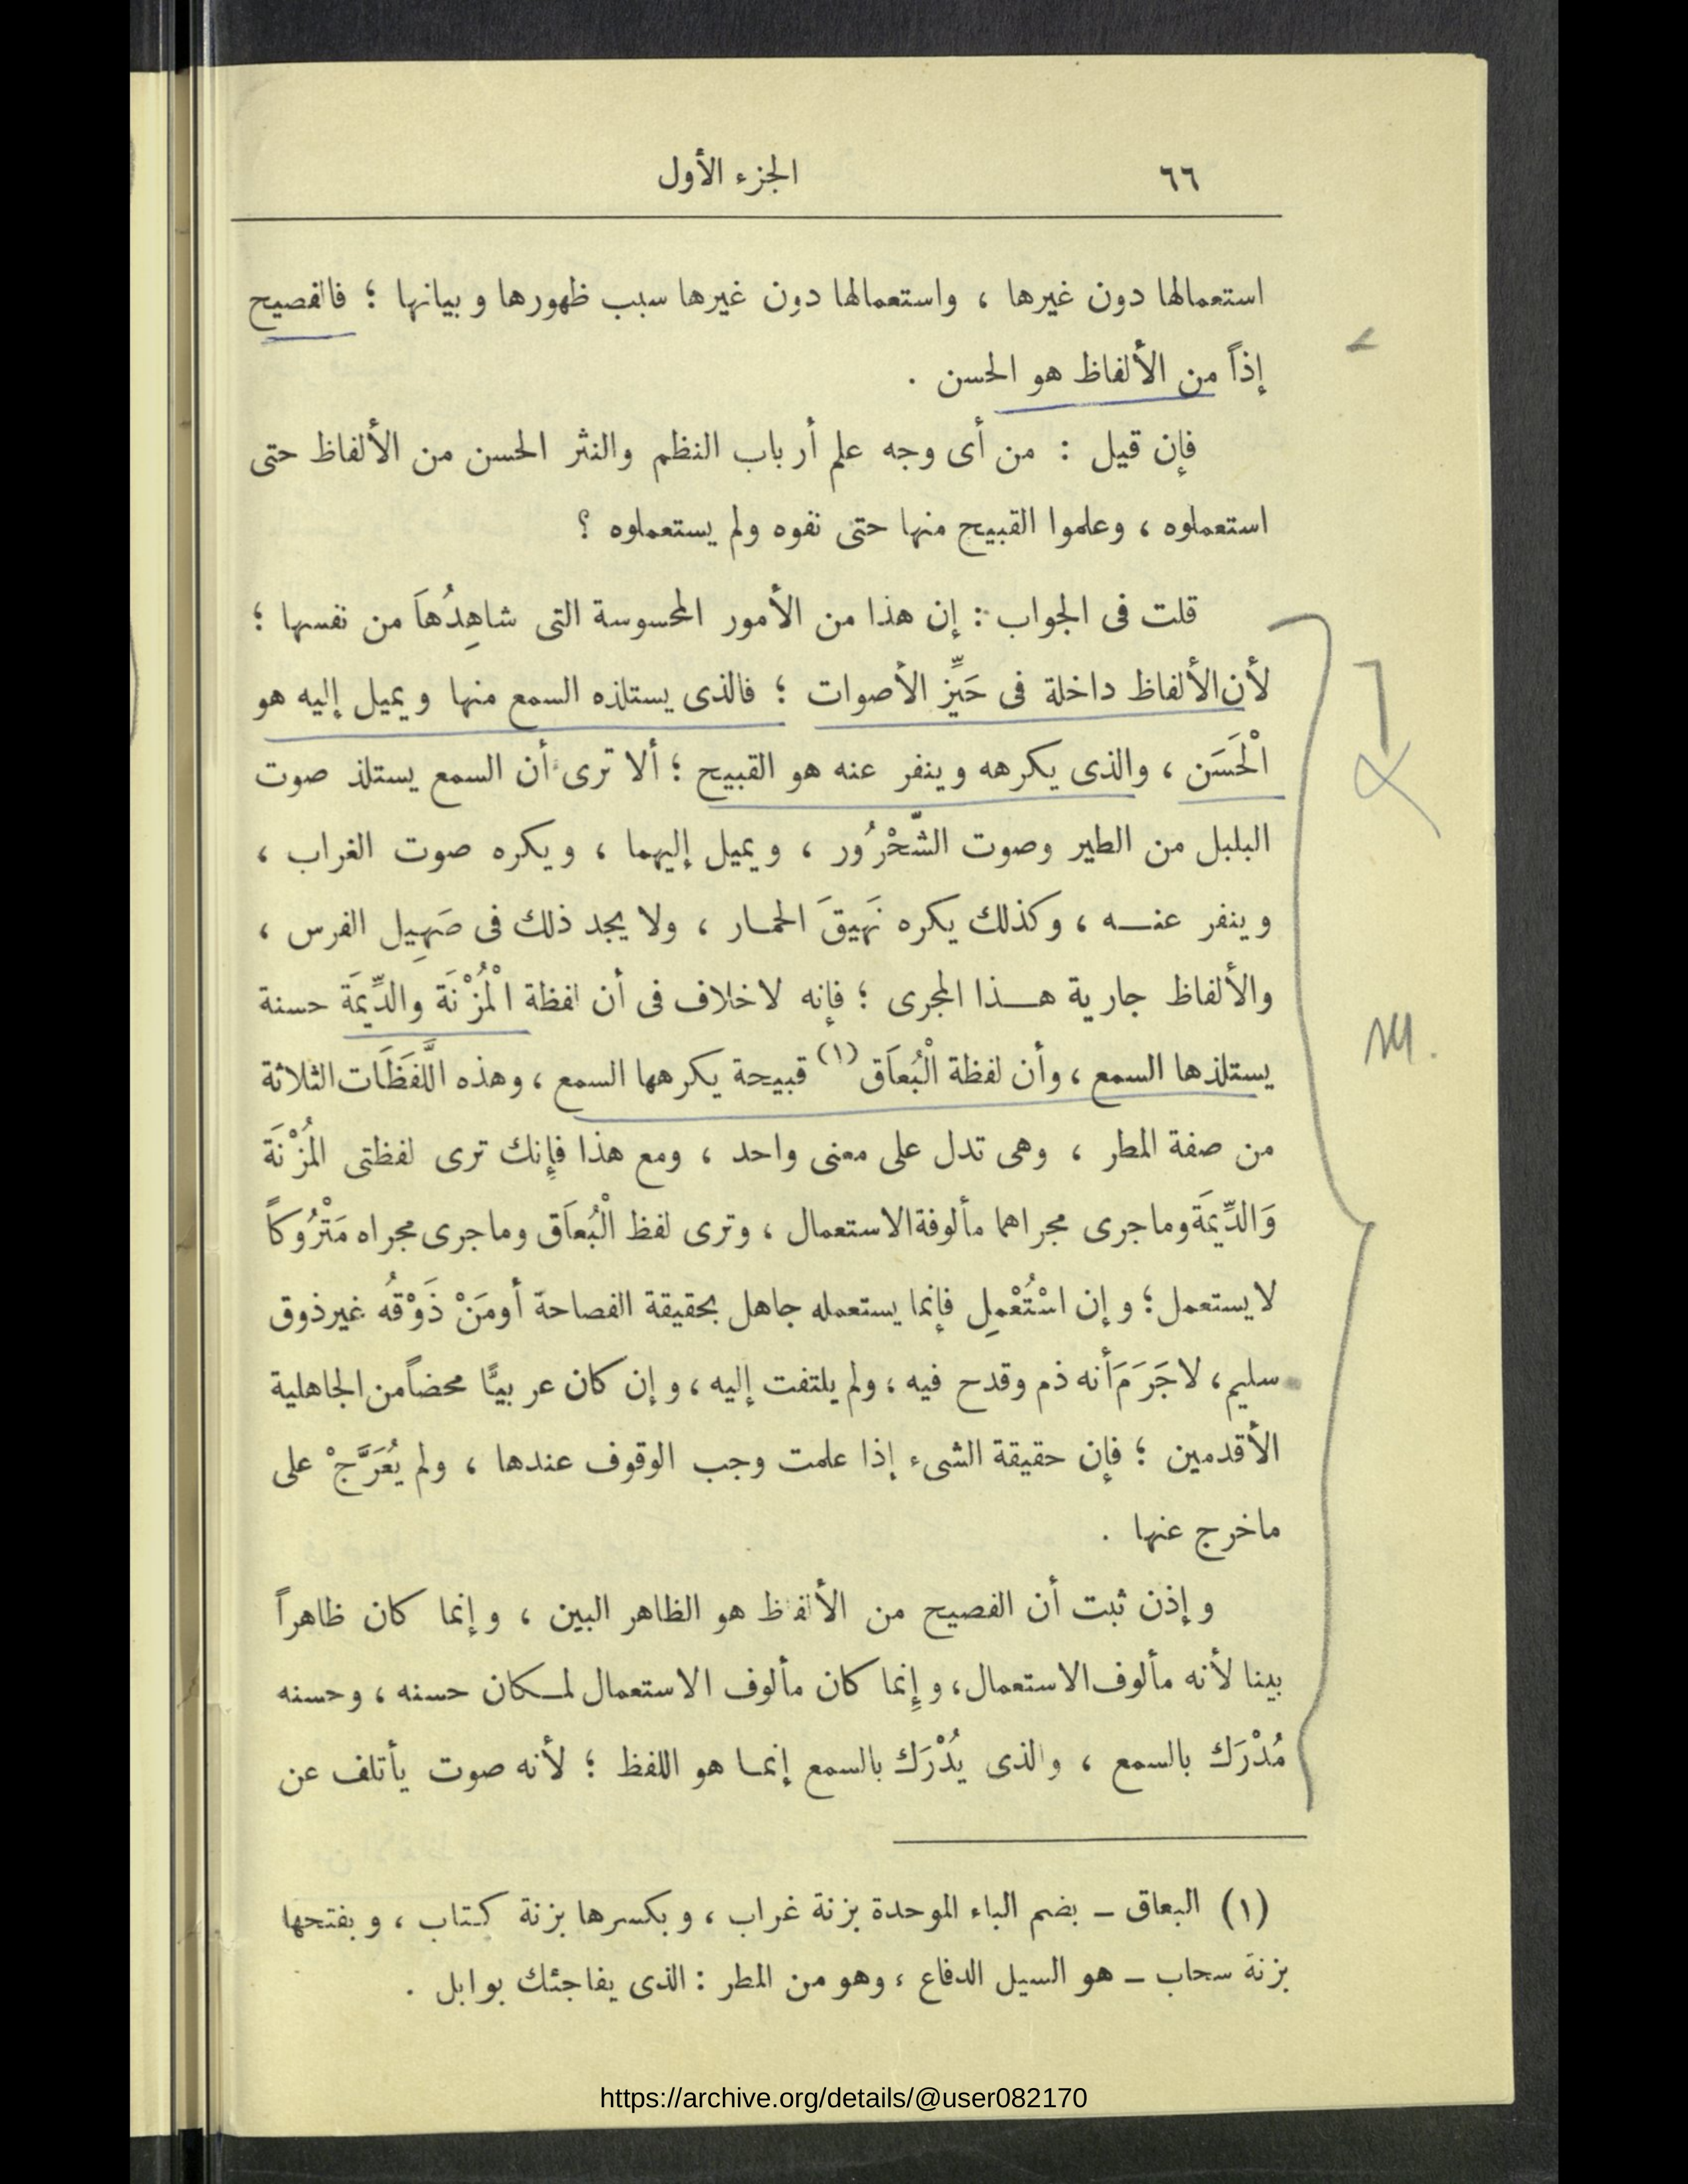 ٦٦ الجزء الأول
استعمالها دون غيرها ، واستعمالها دون غيرها سبب ظهورها وبيانها ؛ فالفصيح
إذاً من الألفاظ هو الحسن .
فإن قيل : من أى وجه علم أرباب النظم والنثر الحسن من الألفاظ حتى
استعملوه ، وعلموا القبيح منها حتى نفوه ولم يستعملوه ؟
قلت فى الجواب : إن هذا من الأمور المحسوسة التى شاهِدُهاَ من نفسها ؛
لأن الألفاظ داخلة فى حَيِّز الأصوات ؛ فالذى يستلذه السمع منها ويميل إليه هو
الْحَسَن ، والذى يكرهه وينفر عنه هو القبيح ؛ ألا ترى أن السمع يستلذ صوت
البلبل من الطير وصوت الشّحْرُور ، ويميل إليهما ، ويكره صوت الغراب ،
وينفر عنـه ، وكذلك يكره نَهِيقَ الحمـار ، ولا يجد ذلك فى صَهِيل الفرس ،
والألفاظ جارية هـذا المجرى ؛ فإنه لا خلاف فى أن لفظة الْمُزْنَة والدِّيمَة حسنة
يستلذها السمع ، وأن لفظة الْبُعاَق (١) قبيحة يكرهها السمع ، وهذه الَّلفَظَات الثلاثة
من صفة المطر ، وهى تدل على معنى واحد ، ومع هذا فإنك ترى لفظتى المُزْنَة
وَالدِّيمَة وما جرى مجراهما مألوفة الاستعمال ، وترى لفظ الْبُعاَق وما جرى مجراه مَتْرُوكاً
لا يستعمل ؛ وإن اسْتُعْمِل فإنما يستعمله جاهل بحقيقة الفصاحة أو مَنْ ذَوْقُه غير ذوق
سليم ، لا جَرَمَ أنه ذم وقدح فيه ، ولم يلتفت إليه ، وإن كان عربيًّا محضاً من الجاهلية
الأقدمين ؛ فإن حقيقة الشىء إذا علمت وجب الوقوف عندها ، ولم يُعَرَّجْ على
ما خرج عنها .
وإذن ثبت أن الفصيح من الألفاظ هو الظاهر البين ، وإنما كان ظاهراً
بينا لأنه مألوف الاستعمال ، وإنما كان مألوف الاستعمال لمـكان حسنه ، وحسنه
مُدْرَك بالسمع ، والذى يُدْرَك بالسمع إنمـا هو اللفظ ؛ لأنه صوت يأتلف عن
(١) البعاق – بضم الباء الموحدة بزنة غراب ، وبكسرها بزنة كتاب ، وبفتحها
بزنة سحاب – هو السيل الدفاع ، وهو من المطر : الذى يفاجئك بوابل .
https://archive.org/details/@user082170